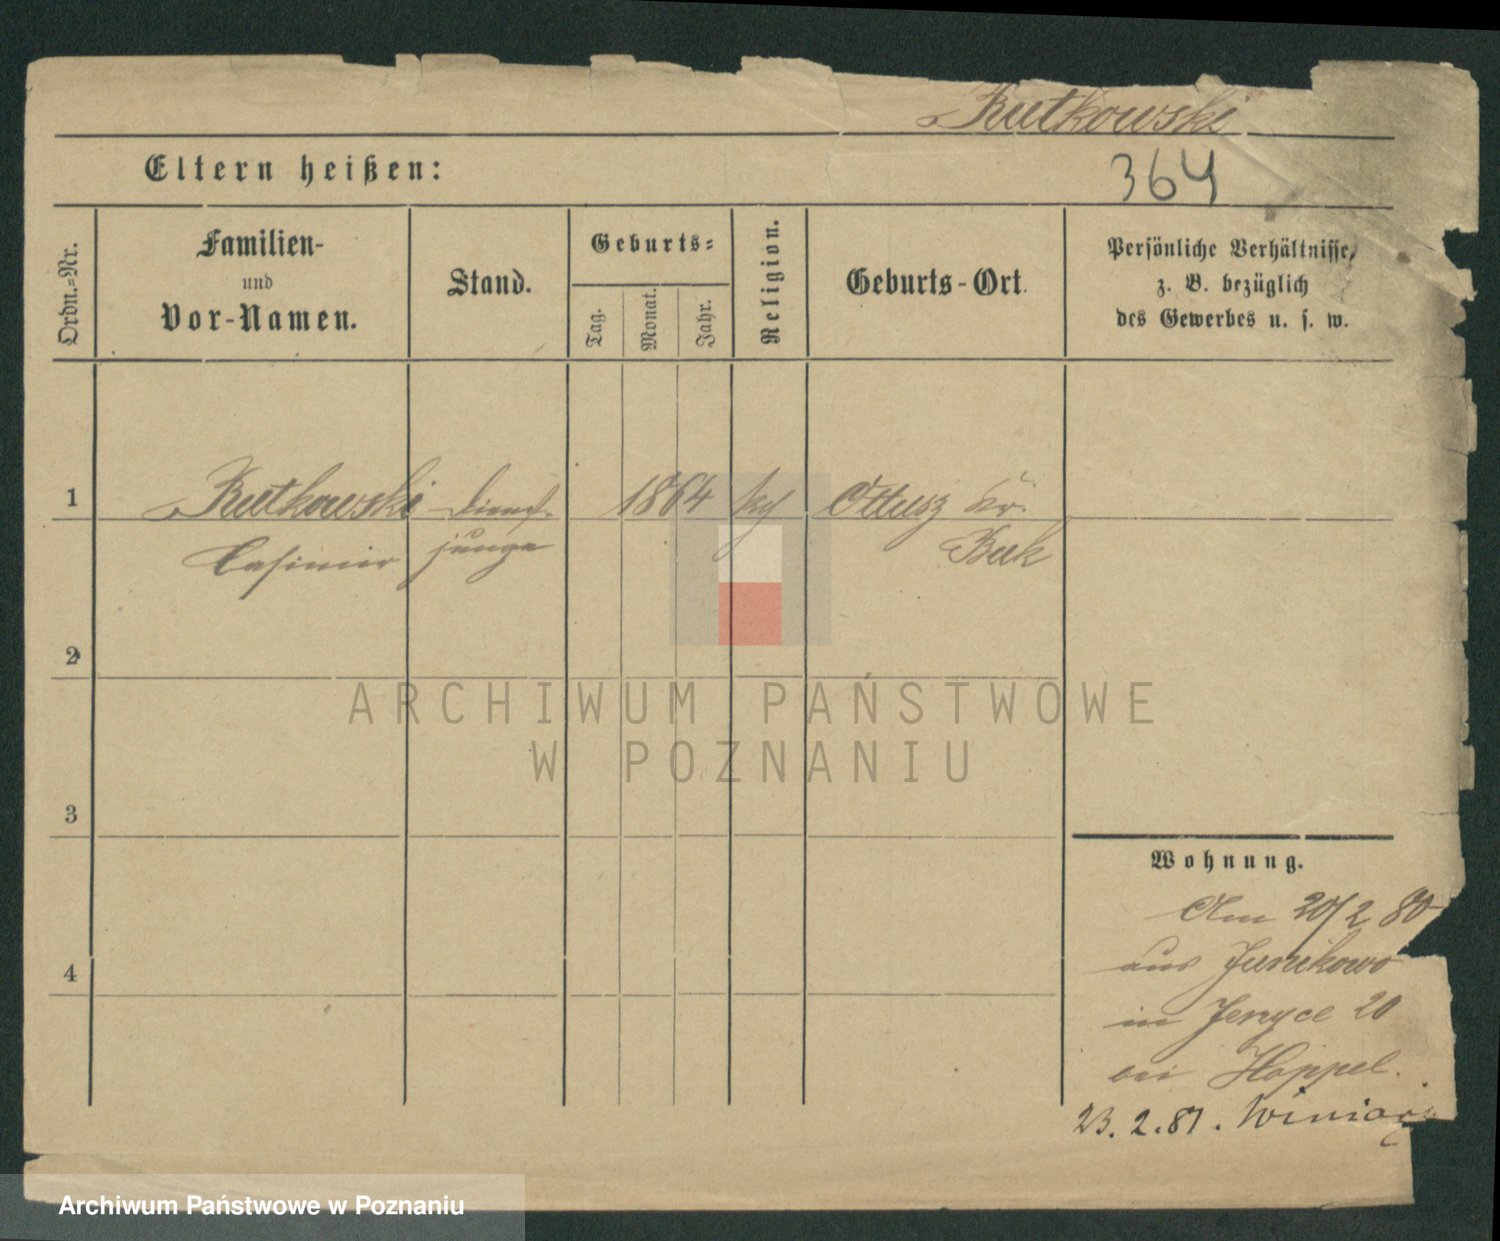 Rutkowski
Eltern heißen:
364
Ordn.-Nr.
Familien-
und
Vor-Namen.
Stand.
Geburts-
Tag.
Monat.
Jahr.
Religion.
Geburts-Ort.
Persönliche Verhältnisse,
z. B. bezüglich
des Gewerbes u. s. w.
1
Rutkowski Dienst- 1864 kth Ottusz Kr.
Casimir junge Buk
2
ARCHIWUM PAŃSTWOWE
W POZNANIU
3
Wohnung.
Am 20/2 80
aus Junikowo
4
in Jerzyce 20
bei Hoppel.
23. 2. 81. Winiary
Archiwum Państwowe w Poznaniu